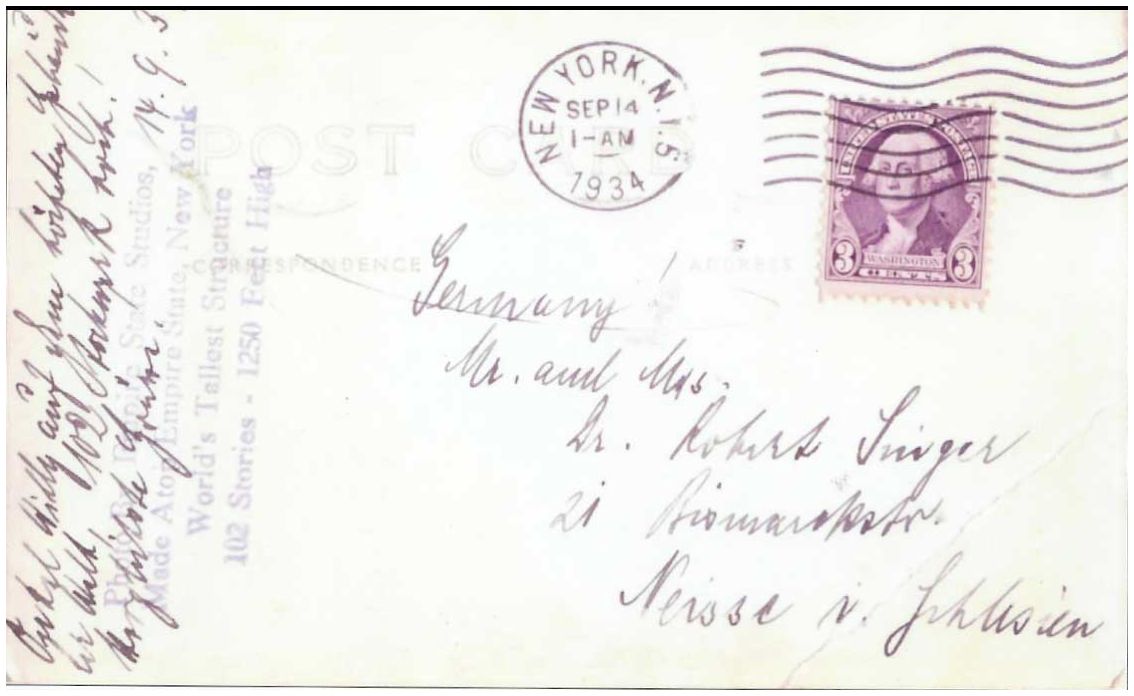 NEW YORK, N.Y. 5
SEP 14
1-AM
1934
UNITED STATES POSTAGE
3 WASHINGTON 3
CENTS
POST CARD
CORRESPONDENCE
ADDRESS
Germany!
Mr. and Mrs.
Dr. Robert Singer
21 Bismarckstr.
Neisse i. Schlesien
Photo By Empire State Studios,
Made Atop Empire State, New York
World's Tallest Structure
102 Stories - 1250 Feet High
Onkel Willy auf dem höchsten
der Welt, 102 Stockwerk hoch!
Herzlichste 14. 9. 3